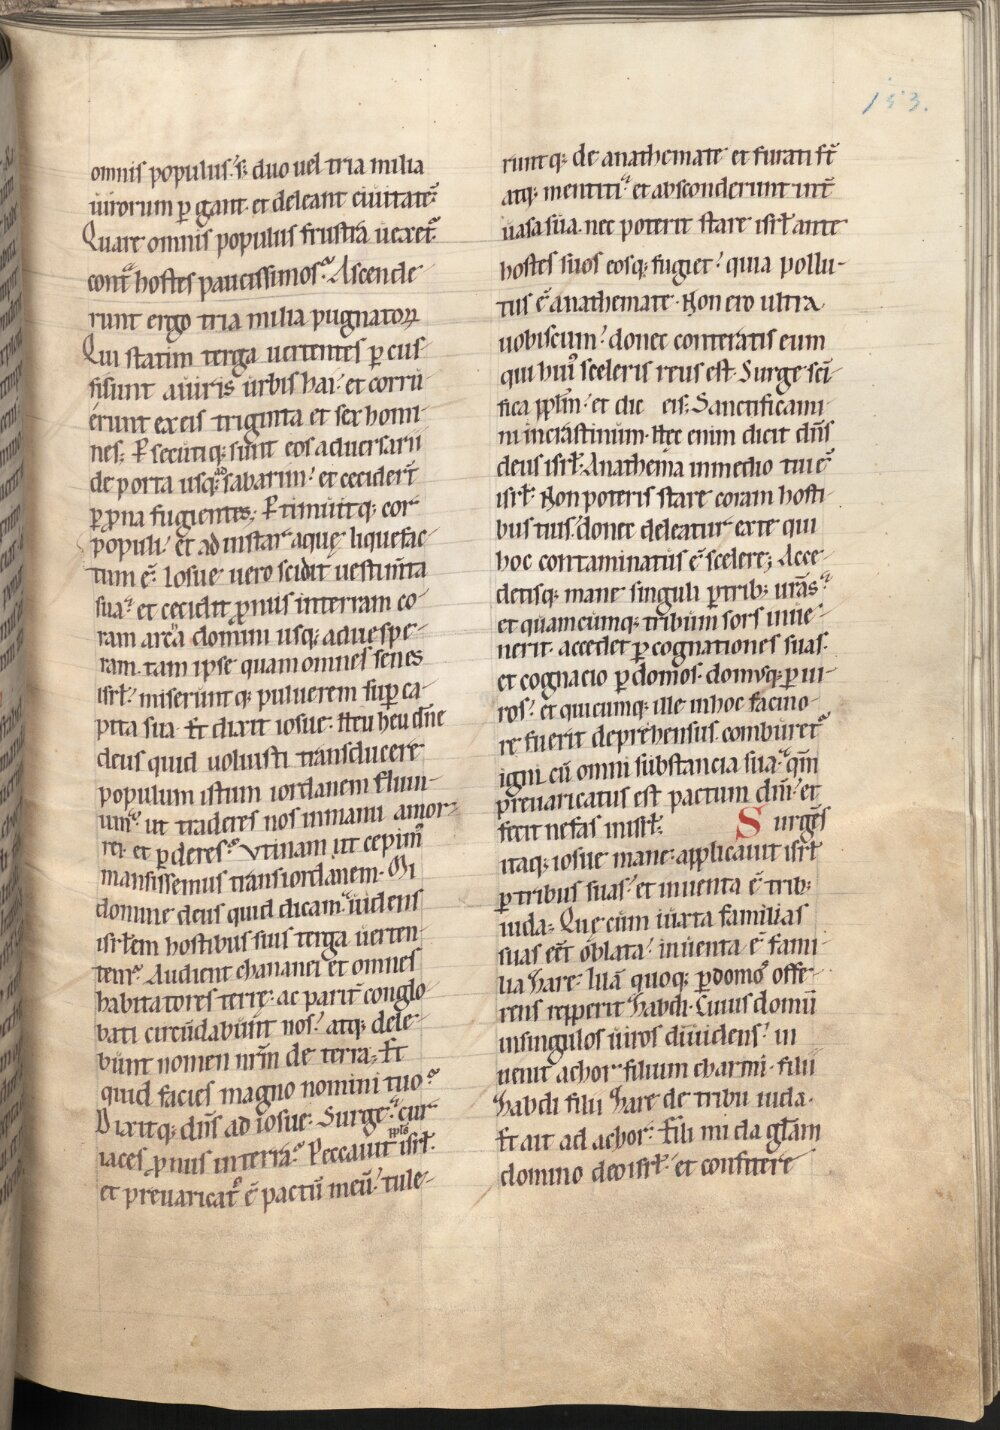 153.
omnis populus. s; duo uel tria milia
uirorum ꝑgant et deleant ciuitatē.
Quare omnis populus frustra uexet᷑
cont̄ hostes paucissimos. Ascende
runt ergo tria milia pugnatoꝝ
Qui statim terga uertentes ꝑcus
sisunt auiris urbis hai. et corru
erunt exeis triginta et sex homi
nes; ꝑsecutiq; sunt eos aduersarii
de porta usq; ad sabarim. et cecider̄t
ꝑ ꝓna fugientes; Ꝑtimuitq; cor
populi. et ad instar aquę liquefac
tum ē. Iosue uero scidit uestim̄ta
sua. et cecidit ꝓnus interram co
ram arca domini usq; aduespe
ram. tam ipse quam omnes senes
isrl̄. miserunt q; puluerem suꝑ ca
pita sua. Et dixit iosue. Heu heu dn̄e
deus quid uoluisti transducere
populum istum iordanem fluui
um. ut traderes nos inmanu amor
rei. et ꝑderes. Vtinam ut cepim᷒
mansissemus transiordanem. Mi
domine deus quid dicam. uidens
isrl̄em hostibus suis terga uerten
tem. Audient chananei et omnes
habitatores terre. ac parit̄ conglo
bati circūdabunt nos. atq; dele
bunt nomen nrm̄ de terra; Et
quid facies magno nomini tuo.
Dixitq; dn̄s ad iosue. Surge. cur
iaces ꝓnus interra. Peccauit ppl̄s isrl̄.
et preuaricat᷒ ē pactū meū. tule
runt q; de anathemate et furati st̄
atq; mentiti. et absconderunt int̄
uasa sua. nec poterit stare isrl̄ ante
hostes suos eosq; fugiet. quia pollu
tus ē anathemate. Non ero ultra
uobiscum. donec conteratis eum
qui hui᷒ sceleris reus est. Surge sci
fica ppl̄m. et dic eis. Sanctificami
ni incrastinum. Hec enim dicit dn̄s
deus isrl̄. Anathema inmedio tui ē
isrl̄. Non poteris stare coram hosti
bus tuis. donec deleatur exte qui
hoc contaminatus ē scelere; Acce
detisq; mane singuli ꝑ trib; ur̄as.
et quamcumq; tribum sors inue
nerit. accedet ꝑ cognationes suas.
et cognacio ꝑ domos. domusq; ꝑ ui
ros. et quicumq; ille inhoc facino
re fuerit deprehensus. comburet᷑
igni cū omni substancia sua. qm̄
preuaricatus est pactum dn̄i. et
fecit nefas inisrl̄; Surgēs
itaq; iosue mane. applicauit isrl̄
ꝑ tribus suas. et inuenta ē trib;
iuda; Que cum iuxta familias
suas eēt oblata. inuenta ē fami
lia hare. Illā quoq; ꝑ domos offe
rens repperit habdi. Cuius domū
insingulos uiros diuidens. in
uenit achor filium charmi. filii
habdi filii hare de tribu iuda.
Et ait ad achor. Fili mi da gl̄am
domino deo isrl̄. et confitere